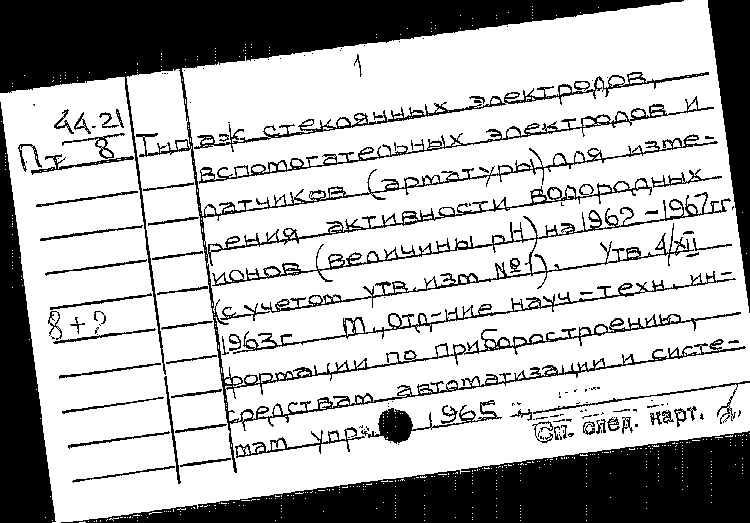 1
44.21
Пт 8
Типаж стеклянных электродов,
вспомогательных электродов и
датчиков (арматуры) для изме-
рения активности водородных
ионов (величины рН) на 1962-1967гг.
(с учетом утв. изм. №1). Утв. 4/XII
1963г. М., Отд-ние науч.-техн. ин-
формации по приборостроению,
средствам автоматизации и систе-
8+2
мам упр. 1965
См. след. карт. 2.